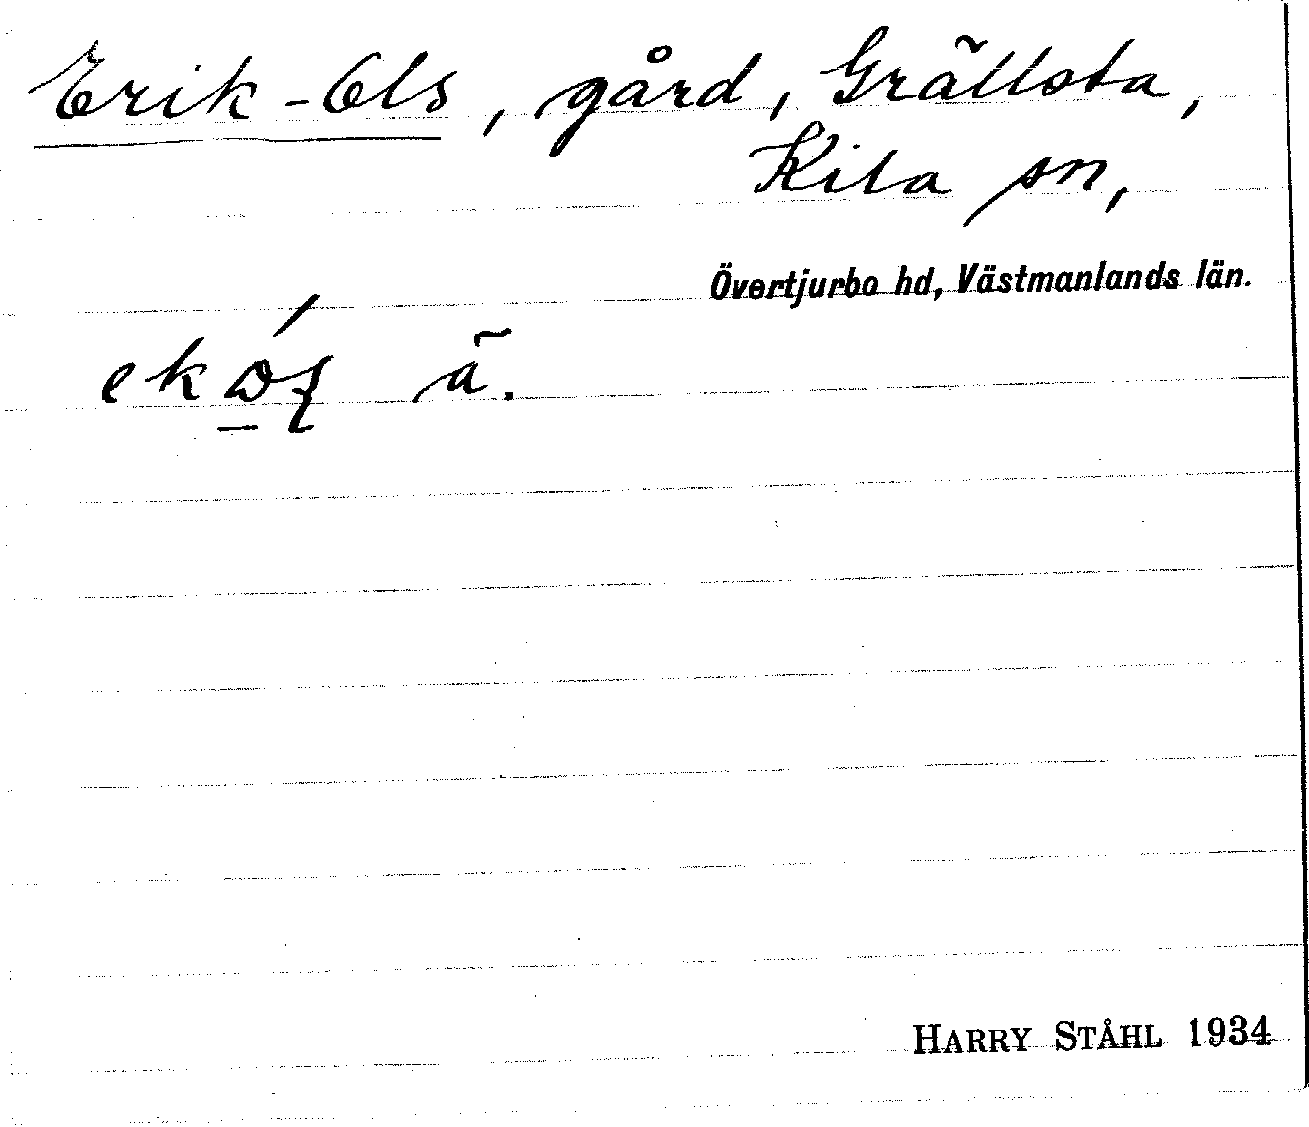 Erik-Ols, gård, Grällsta,
Kila sn,
Övertjurbo hd, Västmanlands län.
ä.
HARRY STÅHL 1934